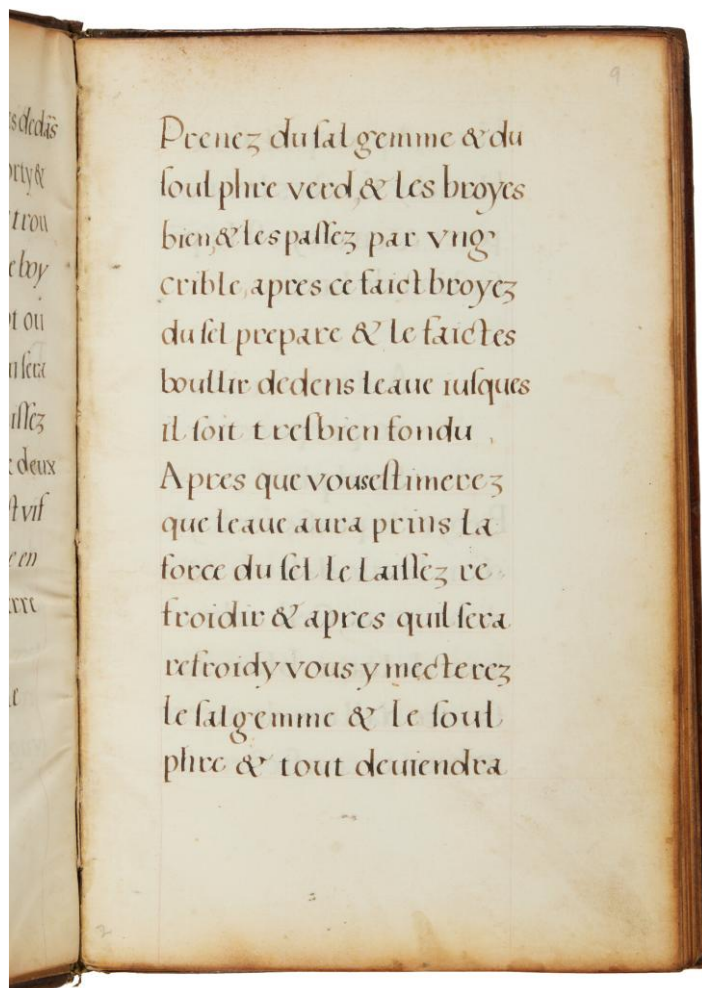 9
s dedãs
orty &
trou
e boy
ot ou
n sera
aissez
: deux
st vif
e en
Prenez du sal gemme & du
soulphre verd, & les broyes
bien, & les passez par vng
crible, apres ce faict broyez
du sel prepare & le faictes
boullir dedens leaue iusques
il soit tresbien fondu
Apres que vous estimerez
que leaue aura prins la
force du sel le laissez re
froidir & apres quil sera
refroidy vous y mecterez
le sal gemme & le soul
phre & tout deuiendra
2